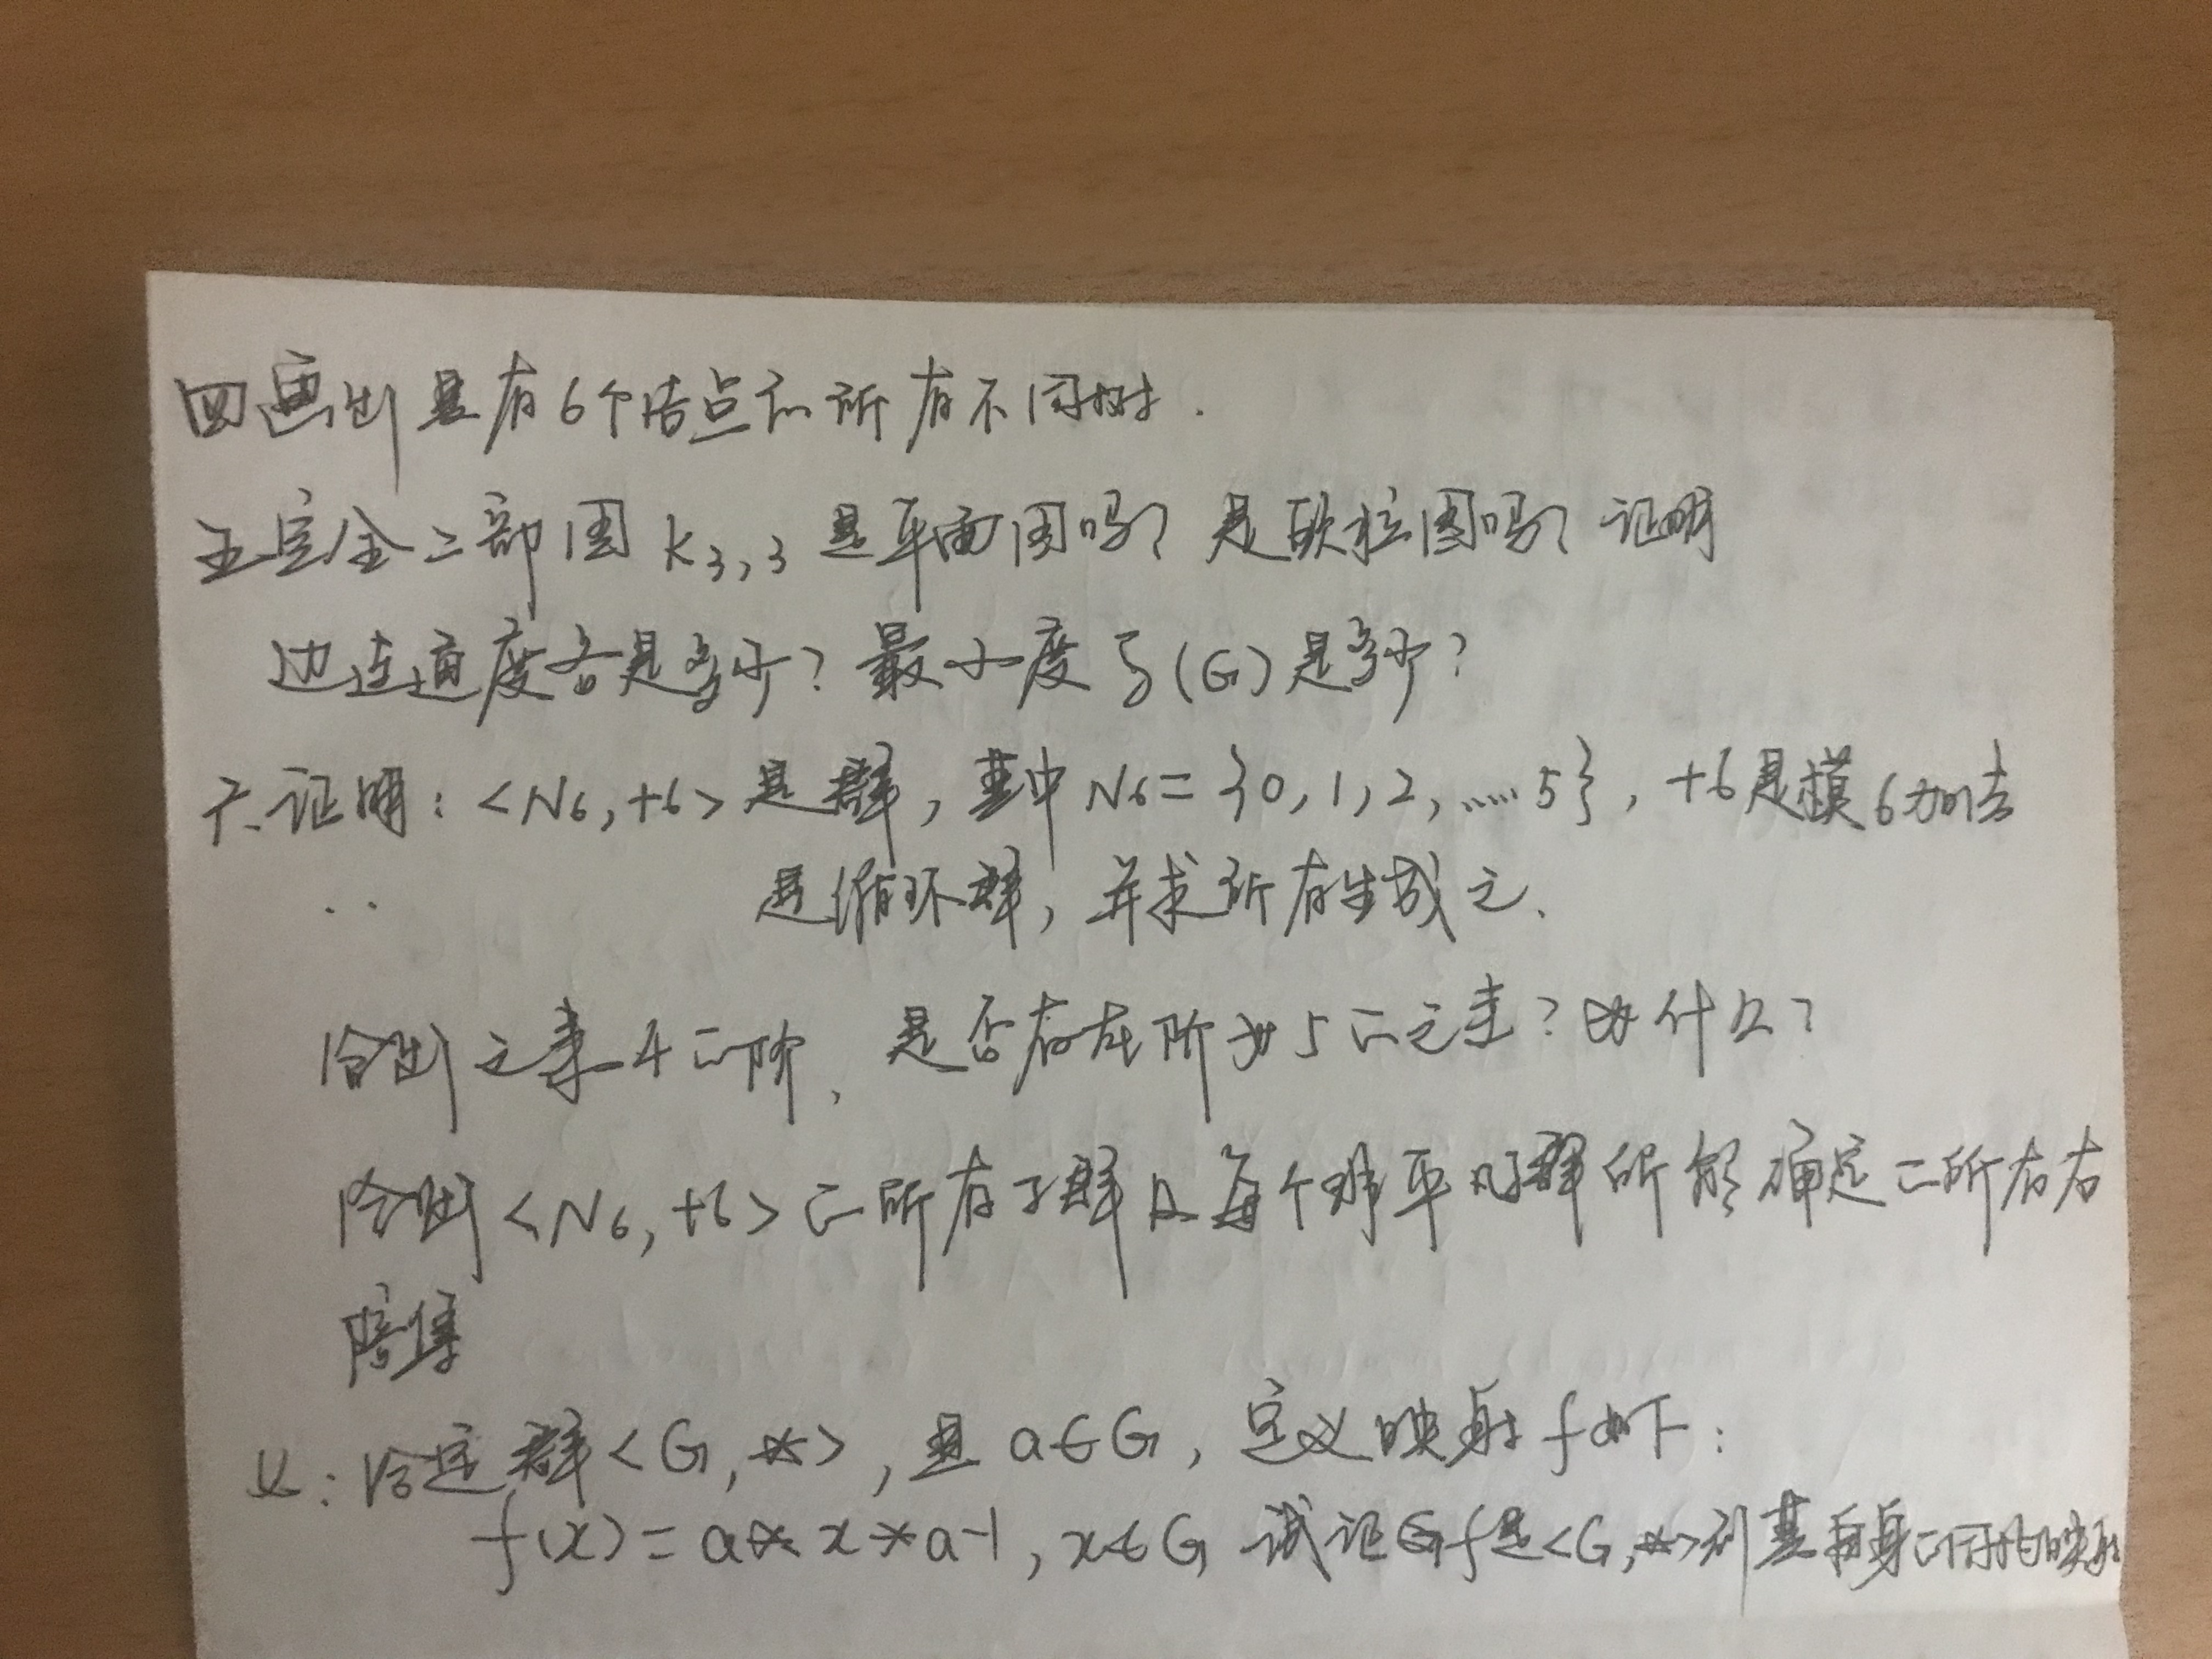 四画出具有6个结点的所有不同树.
五完全二部图 K3,3 是平面图吗? 是欧拉图吗? 证明
边连通度各是多少? 最小度 δ(G) 是多少?
六.证明: <N6, +6> 是群, 其中 N6 = {0, 1, 2, ..... 5}, +6 是模6加法
是循环群, 并求所有生成元.
给出元素4的阶, 是否存在阶为5的元素? 为什么?
给出<N6, +6>的所有子群及每个非平凡子群所能确定的所有右
陪集
七: 给定群<G, *>, 且 a∈G, 定义映射 f 如下:
f(x) = a * x * a-1, x∈G 试证 f是<G, *>到其自身的同构映射